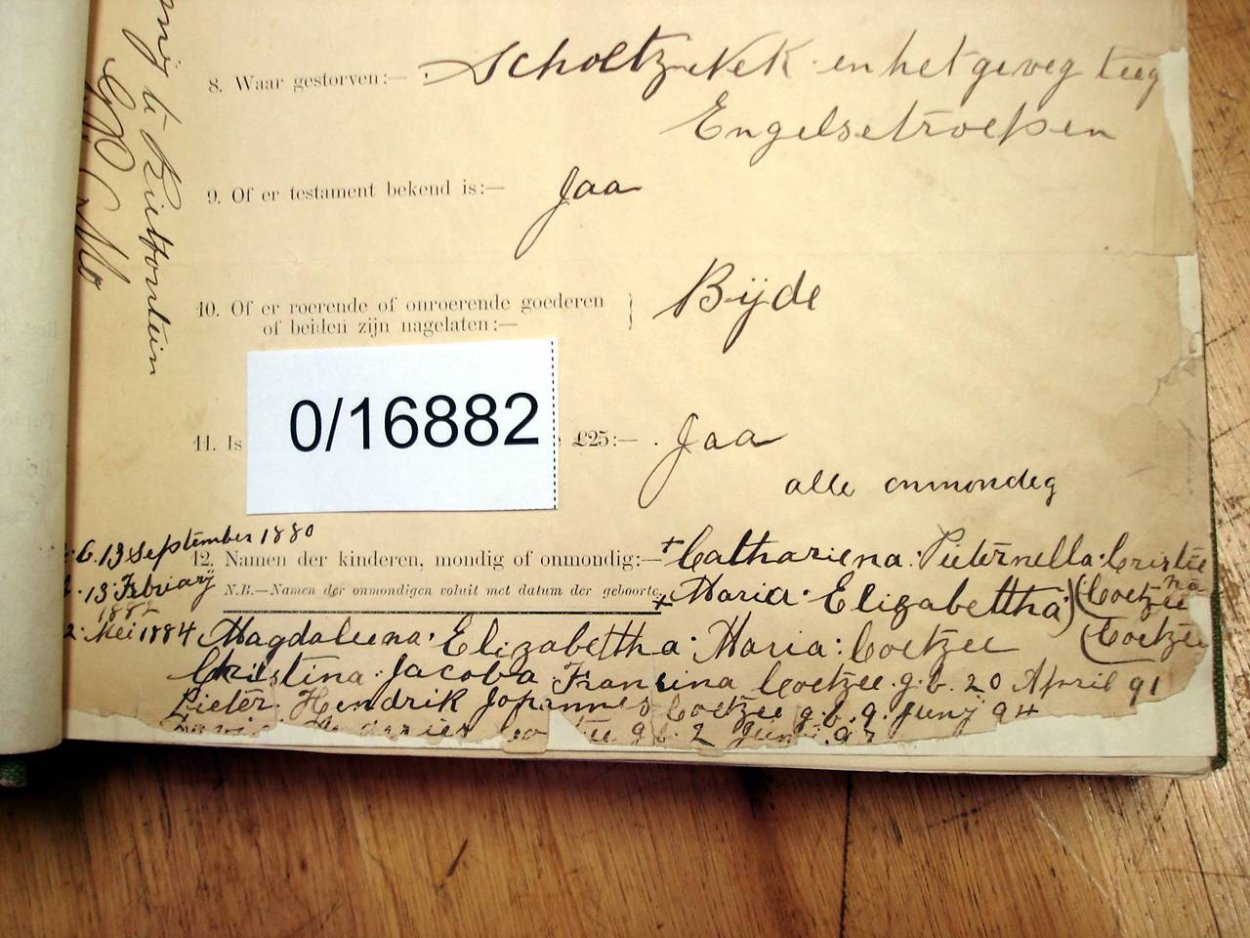 8. Waar gestorven:— Scholtz Nek en het geveg teeg
Engelsetroepen
9. Of er testament bekend is:— Jaa
10. Of er roerende of onroerende goederen
of beiden zijn nagelaten:— Bijde
0/16882
11. Is £25:— Jaa
alle onmondeg
13 September 1880
12. Namen der kinderen, mondig of onmondig:— + Cathariena Pieternella Cristie
na
13 Februarij N.B.—Namen der onmondigen voluit met datum der geboorte. + Maria Elizabettha (Coetzee
1882 (Coetzee
Mei 1884 Magdaleena Elizabettha Maria Coetzee
Cristina Jacoba Fransina Coetzee g.b. 20 April 91
Pieter Hendrik Johannes Coetzee g.b. 9 Junij 94
g b 2 Juni 97
te Rietfontein